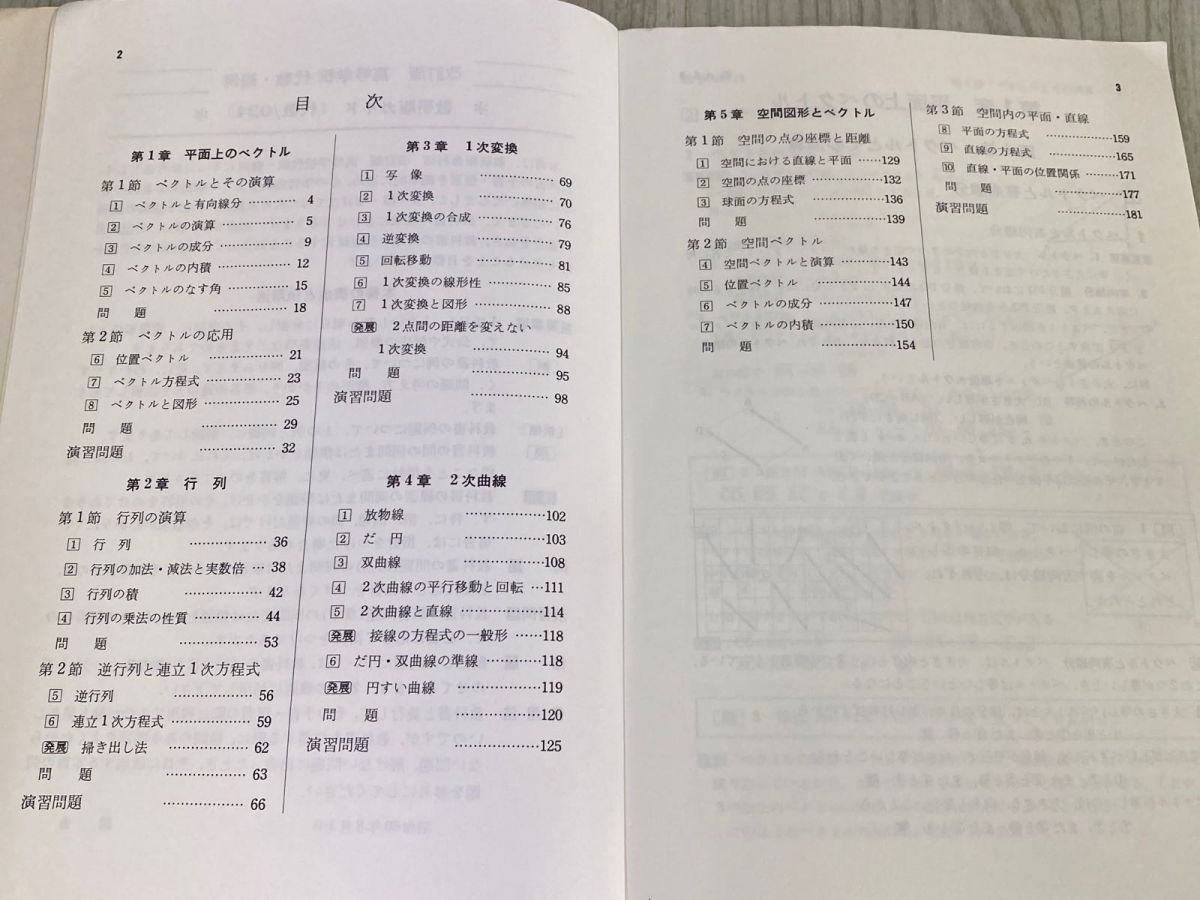 2
目　次
第1章　平面上のベクトル
第1節　ベクトルとその演算
1 ベクトルと有向線分 ………… 4
2 ベクトルの演算 ………… 5
3 ベクトルの成分 ………… 9
4 ベクトルの内積 ………… 12
5 ベクトルのなす角 ………… 15
問　題 ………… 18
第2節　ベクトルの応用
6 位置ベクトル ………… 21
7 ベクトル方程式 ………… 23
8 ベクトルと図形 ………… 25
問　題 ………… 29
演習問題 ………… 32
第2章　行　列
第1節　行列の演算
1 行　列 ………… 36
2 行列の加法・減法と実数倍 … 38
3 行列の積 ………… 42
4 行列の乗法の性質 ………… 44
問　題 ………… 53
第2節　逆行列と連立1次方程式
5 逆行列 ………… 56
6 連立1次方程式 ………… 59
発展 掃き出し法 ………… 62
問　題 ………… 63
演習問題 ………… 66
第3章　1次変換
1 写　像 ………… 69
2 1次変換 ………… 70
3 1次変換の合成 ………… 76
4 逆変換 ………… 79
5 回転移動 ………… 81
6 1次変換の線形性 ………… 85
7 1次変換と図形 ………… 88
発展 2点間の距離を変えない
1次変換 ………… 94
問　題 ………… 95
演習問題 ………… 98
第4章　2次曲線
1 放物線 ………… 102
2 だ　円 ………… 103
3 双曲線 ………… 108
4 2次曲線の平行移動と回転 … 111
5 2次曲線と直線 ………… 114
発展 接線の方程式の一般形 …… 118
6 だ円・双曲線の準線 ……… 118
発展 円すい曲線 ………… 119
問　題 ………… 120
演習問題 ………… 125
3
第5章　空間図形とベクトル
第1節　空間の点の座標と距離
1 空間における直線と平面 …… 129
2 空間の点の座標 ………… 132
3 球面の方程式 ………… 136
問　題 ………… 139
第2節　空間ベクトル
4 空間ベクトルと演算 ……… 143
5 位置ベクトル ………… 144
6 ベクトルの成分 ………… 147
7 ベクトルの内積 ………… 150
問　題 ………… 154
第3節　空間内の平面・直線
8 平面の方程式 ………… 159
9 直線の方程式 ………… 165
10 直線・平面の位置関係 …… 171
問　題 ………… 177
演習問題 ………… 181